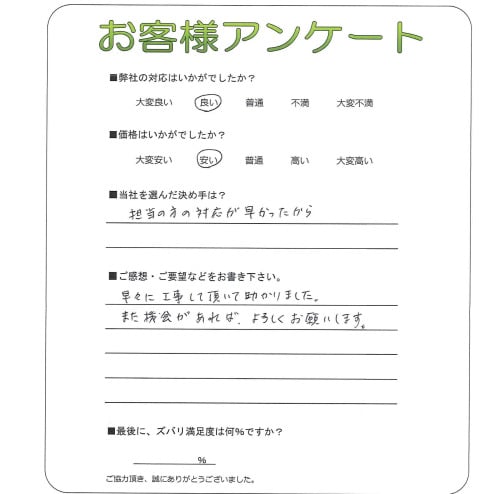 お客様アンケート
■弊社の対応はいかがでしたか?
大変良い 良い 普通 不満 大変不満
■価格はいかがでしたか?
大変安い 安い 普通 高い 大変高い
■当社を選んだ決め手は?
担当の方の対応が早かったから
■ご感想・ご要望などをお書き下さい。
早々に工事して頂いて助かりました。
また機会があれば、よろしくお願いします。
■最後に、ズバリ満足度は何%ですか?
%
ご協力頂き、誠にありがとうございました。